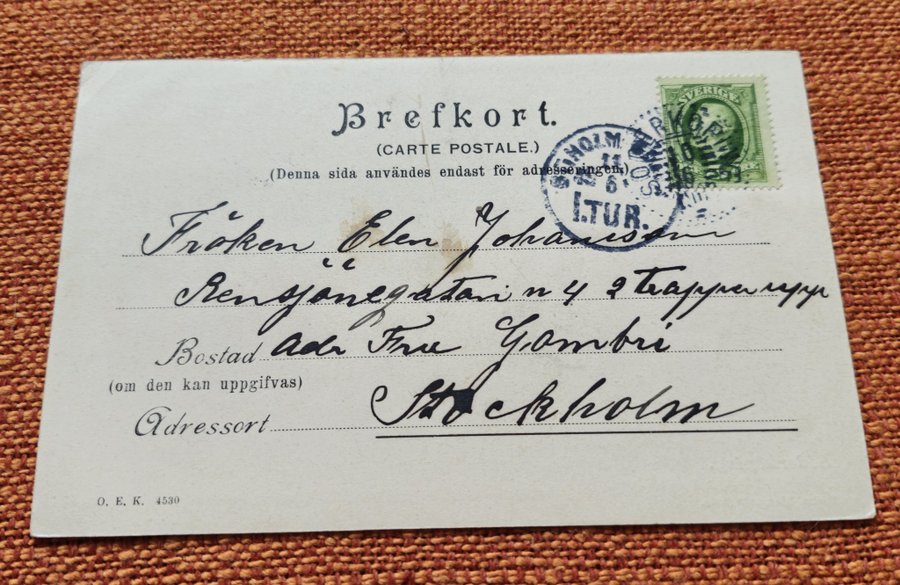 Brefkort.
(CARTE POSTALE.)
(Denna sida användes endast för adresseringen.)
SVERIGE
11
6
1.TUR.
Fröken Elen Johansson
n 4 2 trappor upp
Bostad adr Fru Gombri
(om den kan uppgifvas)
Adressort Stockholm
O. E. K. 4530